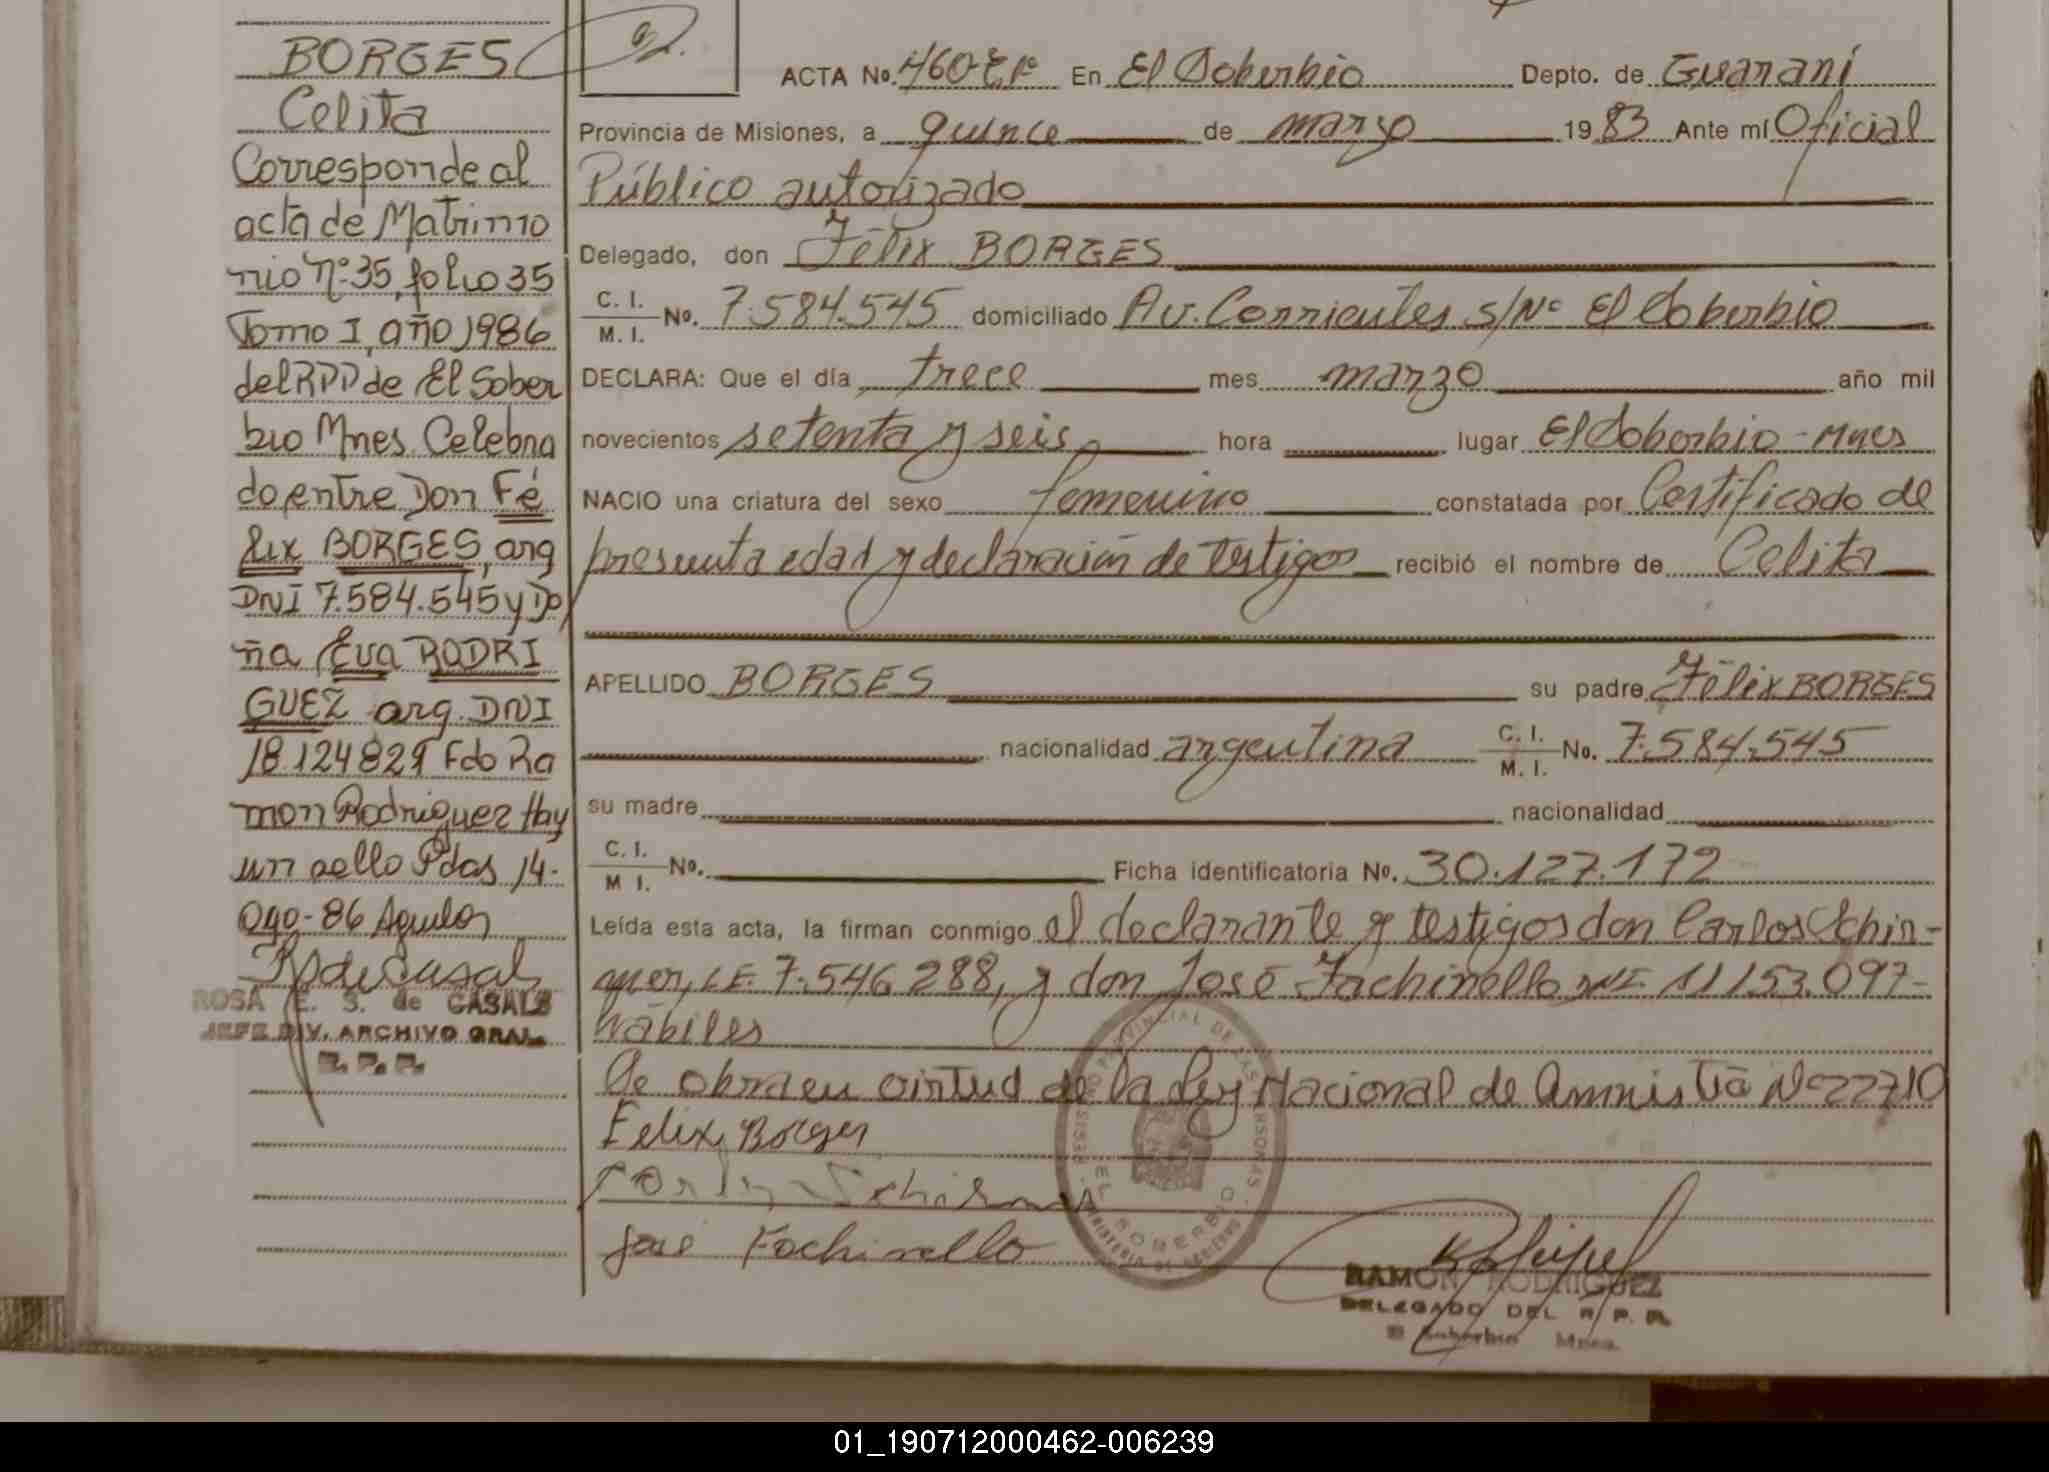 BORGES
Celita
Corresponde al
acta de Matrimo
nio Nº 35, folio 35
Tomo I, año 1986
del RPP de El Sober
bio Mnes. Celebra
do entre Don Fé
lix BORGES, arg
DNI 7.584.545 y Do
ña Eva RODRI
GUEZ arg. DNI
18.124829 Fdo Ra
mon Rodriguez Hay
un sello Pdas 14-
Ago-86 Aguilar
ROSA E. S. de CASALS
JEFE DIV. ARCHIVO GRAL.
R. P. P.
ACTA No. 460 En El Soberbio Depto. de Guaraní
Provincia de Misiones, a quince de marzo 1983 Ante mí Oficial
Público autorizado
Delegado, don Félix BORGES
C. I. / M. I. No. 7.584.545 domiciliado Av. Corrientes s/Nº El Soberbio
DECLARA: Que el día trece mes marzo año mil
novecientos setenta y seis hora lugar El Soberbio - Mnes
NACIO una criatura del sexo femenino constatada por Certificado de
presunta edad y declaración de testigos recibió el nombre de Celita
APELLIDO BORGES su padre Félix BORGES
nacionalidad argentina C. I. / M. I. No. 7.584.545
su madre nacionalidad
C. I. / M I. No. Ficha identificatoria No. 30.127.172
Leída esta acta, la firman conmigo el declarante y testigos don Carlos Schir-
mer, L.E. 7.546.288, y don José Fachinello 11153.097-
hábiles
Se obra en virtud de la Ley Nacional de Amnistía Nº 22710
Felix Borges
José Fachinello
REGISTRO PROVINCIAL DE LAS PERSONAS
EL SOBERBIO
MINISTERIO DE GOBIERNO
RAMON RODRIGUEZ
DELEGADO DEL R. P. P.
El Soberbio Mnes.
01_190712000462-006239